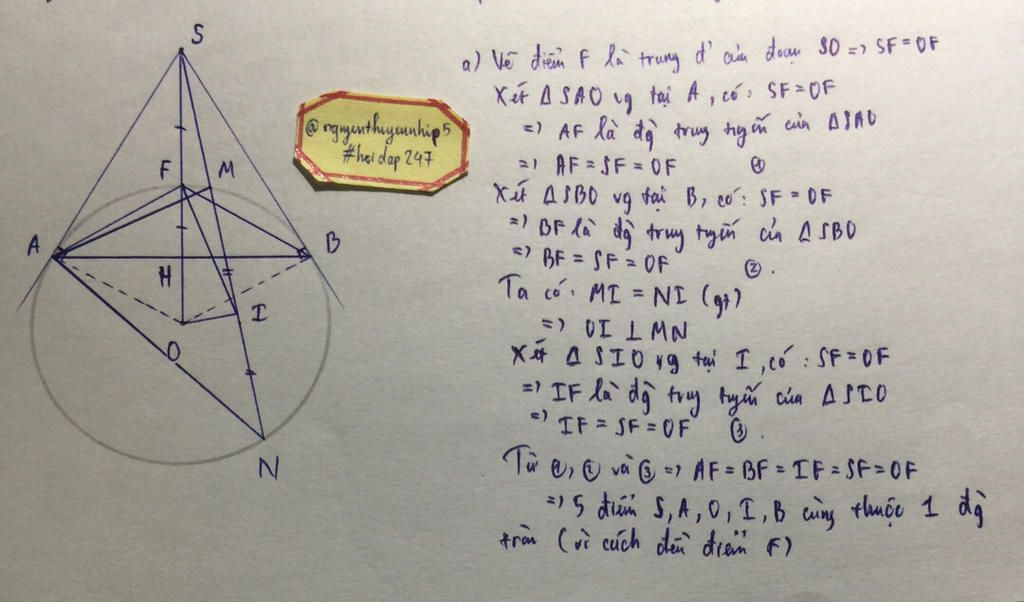 S
F
M
A
B
H
I
O
N
@nguyenthuyeunhip5
#hoidap247
a) Vẽ điểm F là trung đ' của đoạn SO => SF = OF
Xét ΔSAO vg tại A, có: SF = OF
=> AF là đg̀ trug tuyến của ΔSAO
=> AF = SF = OF ①
Xét ΔSBO vg tại B, có: SF = OF
=> BF là đg̀ trug tuyến của ΔSBO
=> BF = SF = OF ②.
Ta có: MI = NI (gt)
=> OI ⊥ MN
Xét ΔSIO vg tại I, có: SF = OF
=> IF là đg̀ trug tuyến của ΔSIO
=> IF = SF = OF ③.
Từ ①, ② và ③ => AF = BF = IF = SF = OF
=> 5 điểm S, A, O, I, B cùng thuộc 1 đg̀
tròn (vì cách đều điểm F)